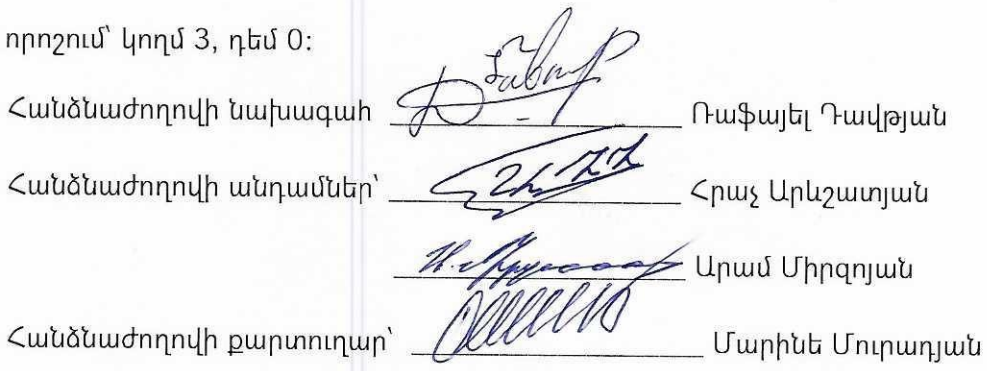 որոշում՝ կողմ 3, դեմ 0:
Հանձնաժողովի նախագահ Ռաֆայել Դավթյան
Հանձնաժողովի անդամներ՝ Հրաչ Արևշատյան
Արամ Միրզոյան
Հանձնաժողովի քարտուղար՝ Մարինե Մուրադյան